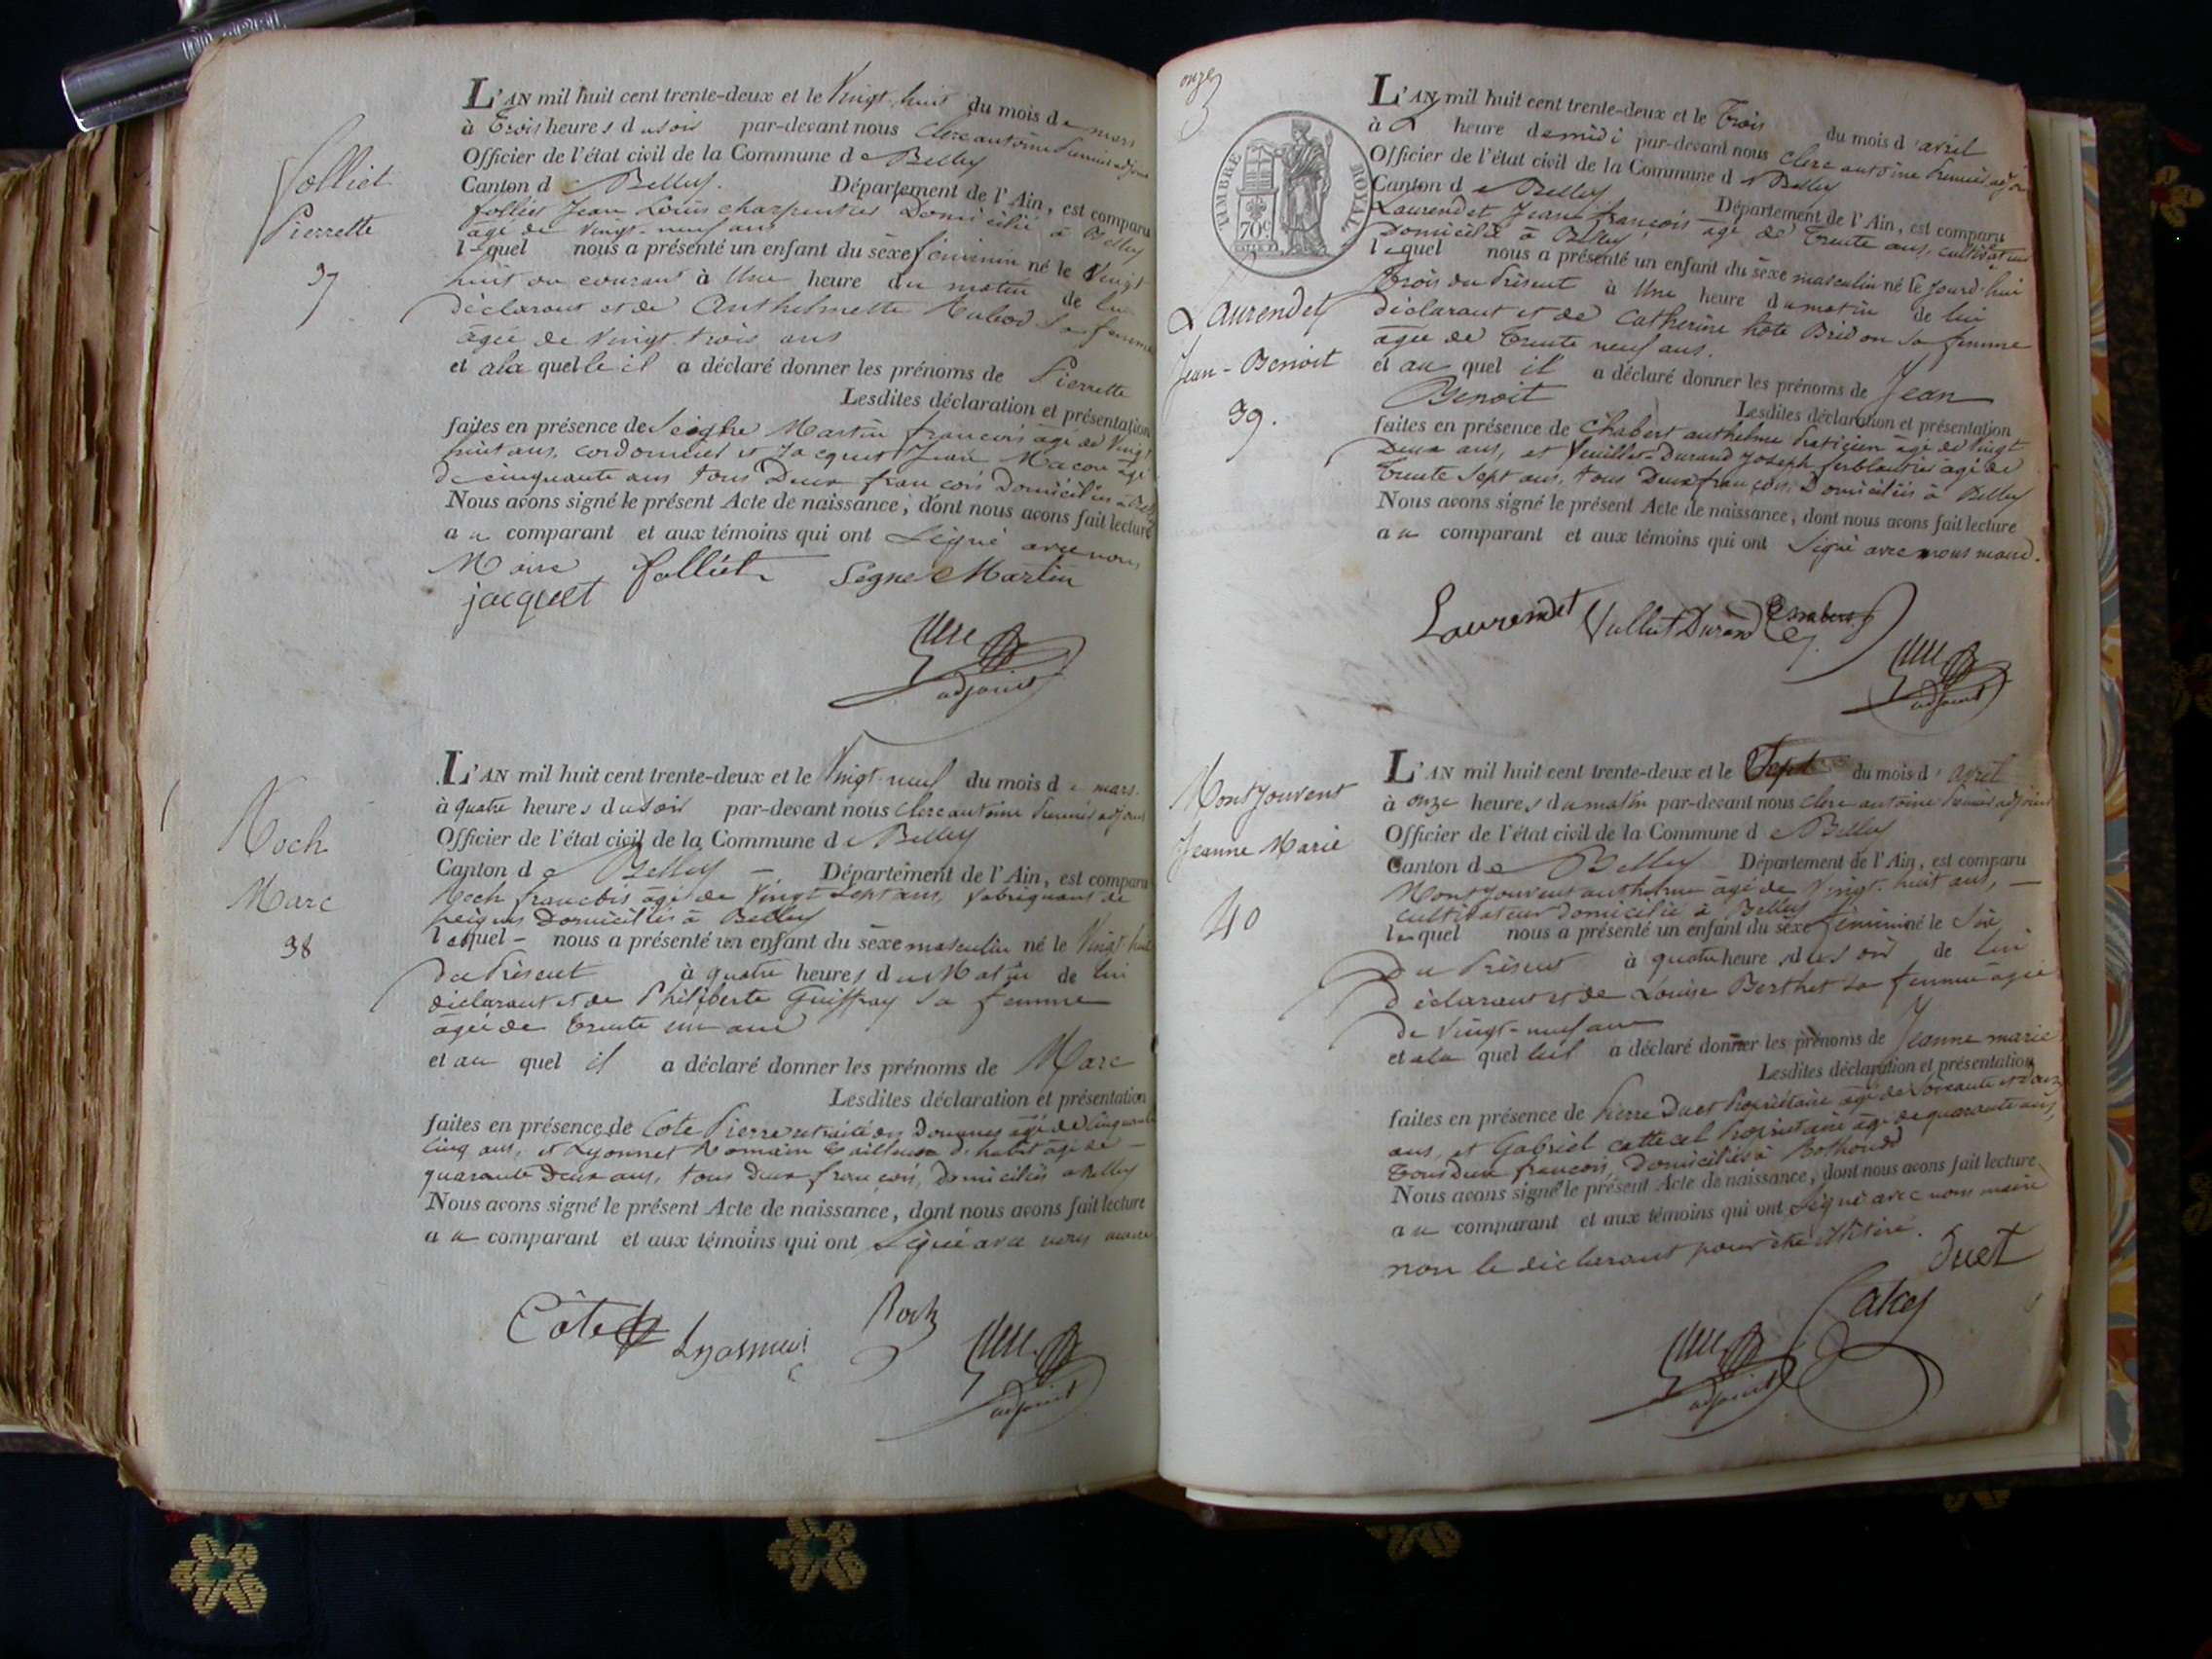 Folliet
Pierrette
37
L'AN mil huit cent trente-deux et le Vingt-huit du mois de mars
à Trois heures du soir par-devant nous Clerc antoine Premier adjoint
Officier de l'état civil de la Commune de Belley
Canton de Belley. Département de l'Ain, est comparu
folliet Jean Louis charpentier Domicilié à Belley
âgé de Vingt-neuf ans
lequel nous a présenté un enfant du sèxe féminin né le Vingt
huit du courant à Une heure du matin de lui
déclarant et de Anthelmette sa femme
âgée de Vingt-trois ans
et ala quelle il a déclaré donner les prénoms de Pierrette
Lesdites déclaration et présentation
faites en présence de Martin françois âgé de Vingt
huit ans, cordonnier et Jacquet Jean Macon âgé
de cinquante ans tous Deux françois Domiciliés à Belley
Nous avons signé le présent Acte de naissance, dont nous avons fait lecture
au comparant et aux témoins qui ont Signé avec nous
Maire folliet Martin
jacquet
adjoint
Roch
Marc
38
L'AN mil huit cent trente-deux et le Vingt-neuf du mois de mars.
à quatre heures du soir par-devant nous Clerc antoine Premier adjoint
Officier de l'état civil de la Commune de Belley
Canton de Belley Département de l'Ain, est comparu
Roch francois âgé de Vingt Sept ans, fabriquant de
peignes Domicilié à Belley
lequel nous a présenté un enfant du sèxe masculin né le Vingt huit
du Présent à quatre heures du Matin de lui
déclarant et de Philiberte Guiffray sa femme
âgée de trente un ans
et au quel il a déclaré donner les prénoms de Marc
Lesdites déclaration et présentation
faites en présence de Cote Pierre retraité des Douanes âgé de Cinquante
cinq ans, et Lyonnet Romain Tailleur d'habit âgé de
quarante Deux ans, tous Deux françois, Domiciliés à Belley
Nous avons signé le présent Acte de naissance, dont nous avons fait lecture
au comparant et aux témoins qui ont Signé avec nous maire
Côte Lyonnet Roch
adjoint
onze
TIMBRE ROYAL
70c.
Laurendet
Jean-Benoit
39.
L'AN mil huit cent trente-deux et le Trois du mois d'avril
à heure de midi par-devant nous Clerc antoine Premier adjoint
Officier de l'état civil de la Commune de Belley
Canton de Belley Département de l'Ain, est comparu
Laurendet Jean françois âgé de Trente ans, cultivateur
Domicilié à Belley
lequel nous a présenté un enfant du sèxe masculin né le jourd'hui
Trois du Présent à Une heure du matin de lui
déclarant et de Catherine Bridon sa femme
âgée de Trente neuf ans.
et au quel il a déclaré donner les prénoms de Jean
Benoit
Lesdites déclaration et présentation
faites en présence de Chabert anthelme Praticien âgé de Vingt
Deux ans, et Veuillet-Durand Joseph ferblantier âgé de
Trente Sept ans, tous Deux françois, Domiciliés à Belley
Nous avons signé le présent Acte de naissance, dont nous avons fait lecture
au comparant et aux témoins qui ont Signé avec nous maire.
Laurendet Vulliet Durand Chabert
adjoint
Montjouvent
Jeanne Marie
40
L'AN mil huit cent trente-deux et le Sept du mois d'avril
à onze heures du matin par-devant nous clerc antoine Premier adjoint
Officier de l'état civil de la Commune de Belley
Canton de Belley Département de l'Ain, est comparu
Montjouvent anthelme âgé de Vingt-huit ans,
cultivateur Domicilié à Belley
lequel nous a présenté un enfant du sèxe féminin né le Six
du Présent à quatre heures du soir de lui
Déclarant et de Louise Berthet sa femme âgée
de Vingt-neuf ans
et ala quel lui a déclaré donner les prénoms de Jeanne marie
Lesdites déclaration et présentation
faites en présence de Pierre Duet Propriétaire âgé de Soixante et onze
ans, et Gabriel Propriétaire âgé de quarante ans,
Tous Deux françois, Domiciliés à Rothonod
Nous avons signé le présent Acte de naissance, dont nous avons fait lecture
au comparant et aux témoins qui ont Signé avec nous maire
non le déclarant pour être illitéré.
Duet
adjoint